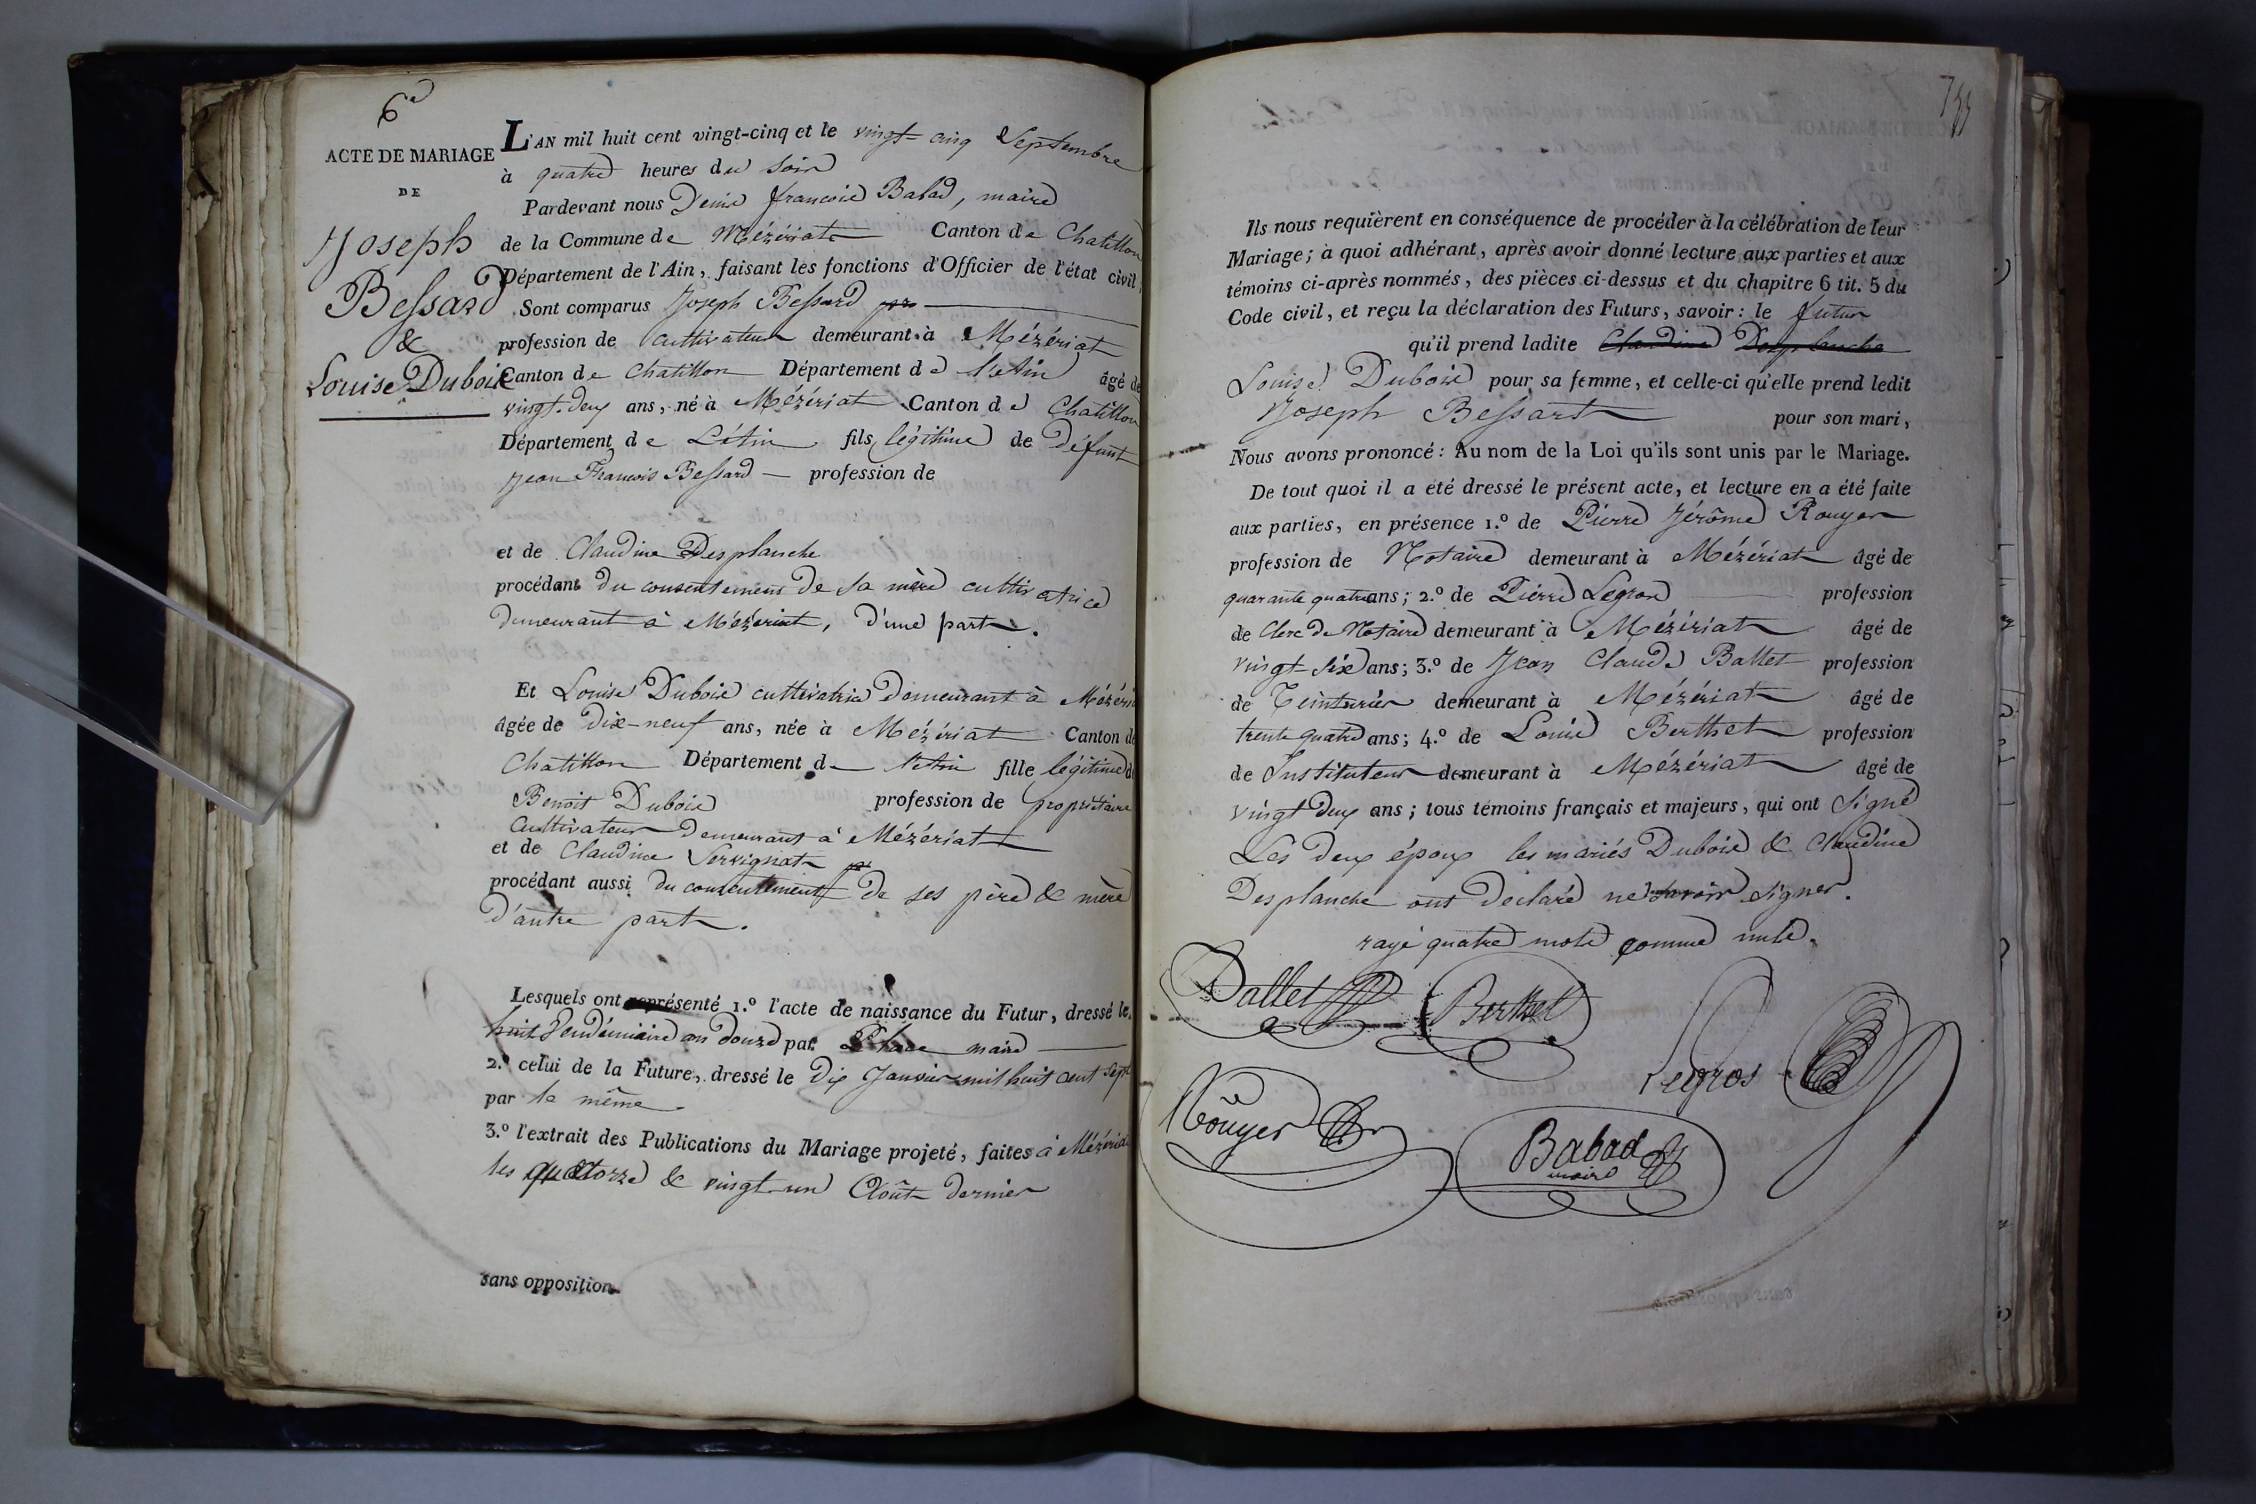 6e
ACTE DE MARIAGE
DE
Joseph
Bessard
&
Louise Dubois
L'AN mil huit cent vingt-cinq et le vingt-cinq Septembre
à quatre heures du soir
Pardevant nous Denis françois Babad, maire
de la Commune de Mézériat Canton de Chatillon
Département de l'Ain, faisant les fonctions d'Officier de l'état civil,
Sont comparus Joseph Bessard
profession de cultivateur demeurant à Mézériat
Canton de Chatillon Département de l'Ain âgé de
vingt-deux ans, né à Mézériat Canton de Chatillon
Département de L'Ain fils légitime de défunt
Jean François Bessard — profession de
et de Claudine Desplanche
procédant du consentement de sa mère cultivatrice
demeurant à Mézériat, d'une part.
Et Louise Dubois cultivatrice demeurant à Mézéria
âgée de Dix-neuf ans, née à Mézériat Canton de
Chatillon Département de l'Ain fille légitime de
Benoit Dubois profession de propriétaire
Cultivateur demeurant à Mézériat
et de Claudine Servignat
procédant aussi du consentement de ses père & mère
d'autre part.
Lesquels ont représenté 1.º l'acte de naissance du Futur, dressé le
huit Vendémiaire an douze par maire
2.º celui de la Future, dressé le dix Janvier mil huit cent sept
par le même
3.º l'extrait des Publications du Mariage projeté, faites à Mézériat
les quatorze & vingt-un Août dernier
sans opposition.
Ils nous requièrent en conséquence de procéder à la célébration de leur
Mariage; à quoi adhérant, après avoir donné lecture aux parties et aux
témoins ci-après nommés, des pièces ci-dessus et du chapitre 6 tit. 5 du
Code civil, et reçu la déclaration des Futurs, savoir: le futur
qu'il prend ladite Claudine Desplanche
Louise Dubois pour sa femme, et celle-ci qu'elle prend ledit
Joseph Bessard pour son mari,
Nous avons prononcé: Au nom de la Loi qu'ils sont unis par le Mariage.
De tout quoi il a été dressé le présent acte, et lecture en a été faite
aux parties, en présence 1.º de Pierre Jérôme Rouyer
profession de Notaire demeurant à Mézériat âgé de
quarante quatre ans; 2.º de Pierre Legros profession
de Clerc de Notaire demeurant à Mézériat âgé de
vingt six ans; 3.º de Jean Claude Ballet profession
de Teinturier demeurant à Mézériat âgé de
trente quatre ans; 4.º de Louis Berthet profession
de Instituteur demeurant à Mézériat âgé de
vingt deux ans; tous témoins français et majeurs, qui ont signé
Les deux époux les mariés Dubois & Claudine
Desplanche ont déclaré ne savoir signer.
rayé quatre mots comme nuls.
Ballet Berthet
Legros
Rouyer
Babad
maire